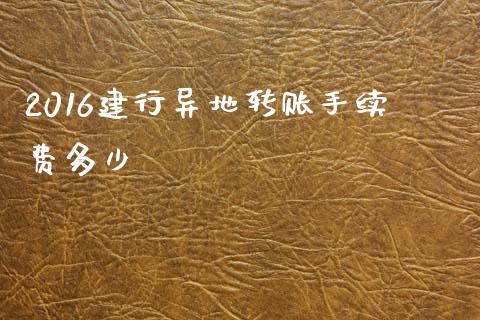 2016建行异地转账手续
费多少